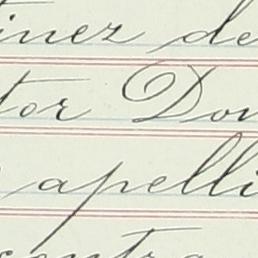 inez de
tor Don
apelli
contra